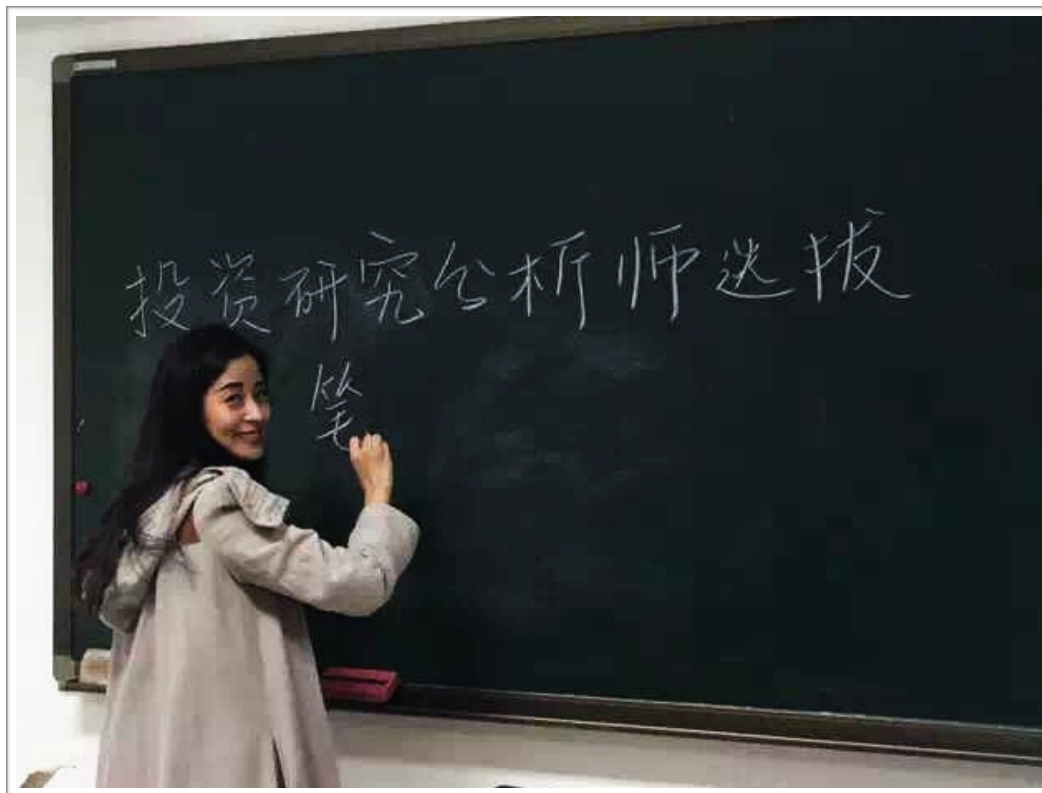 投资研究分析师选拔
笔